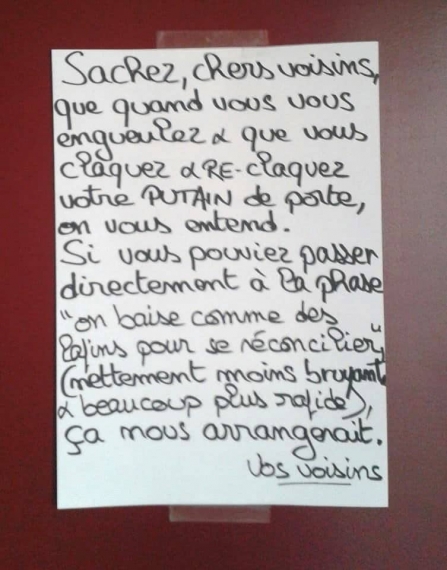 Sachez, chers voisins,
que quand vous vous
engueulez & que vous
claquez & RE-claquez
votre PUTAIN de porte,
on vous entend.
Si vous pouviez passer
directement à la phase
"on baise comme des
lapins pour se réconcilier"
(nettement moins bruyant
& beaucoup plus rapide),
ça nous arrangerait.
Vos voisins